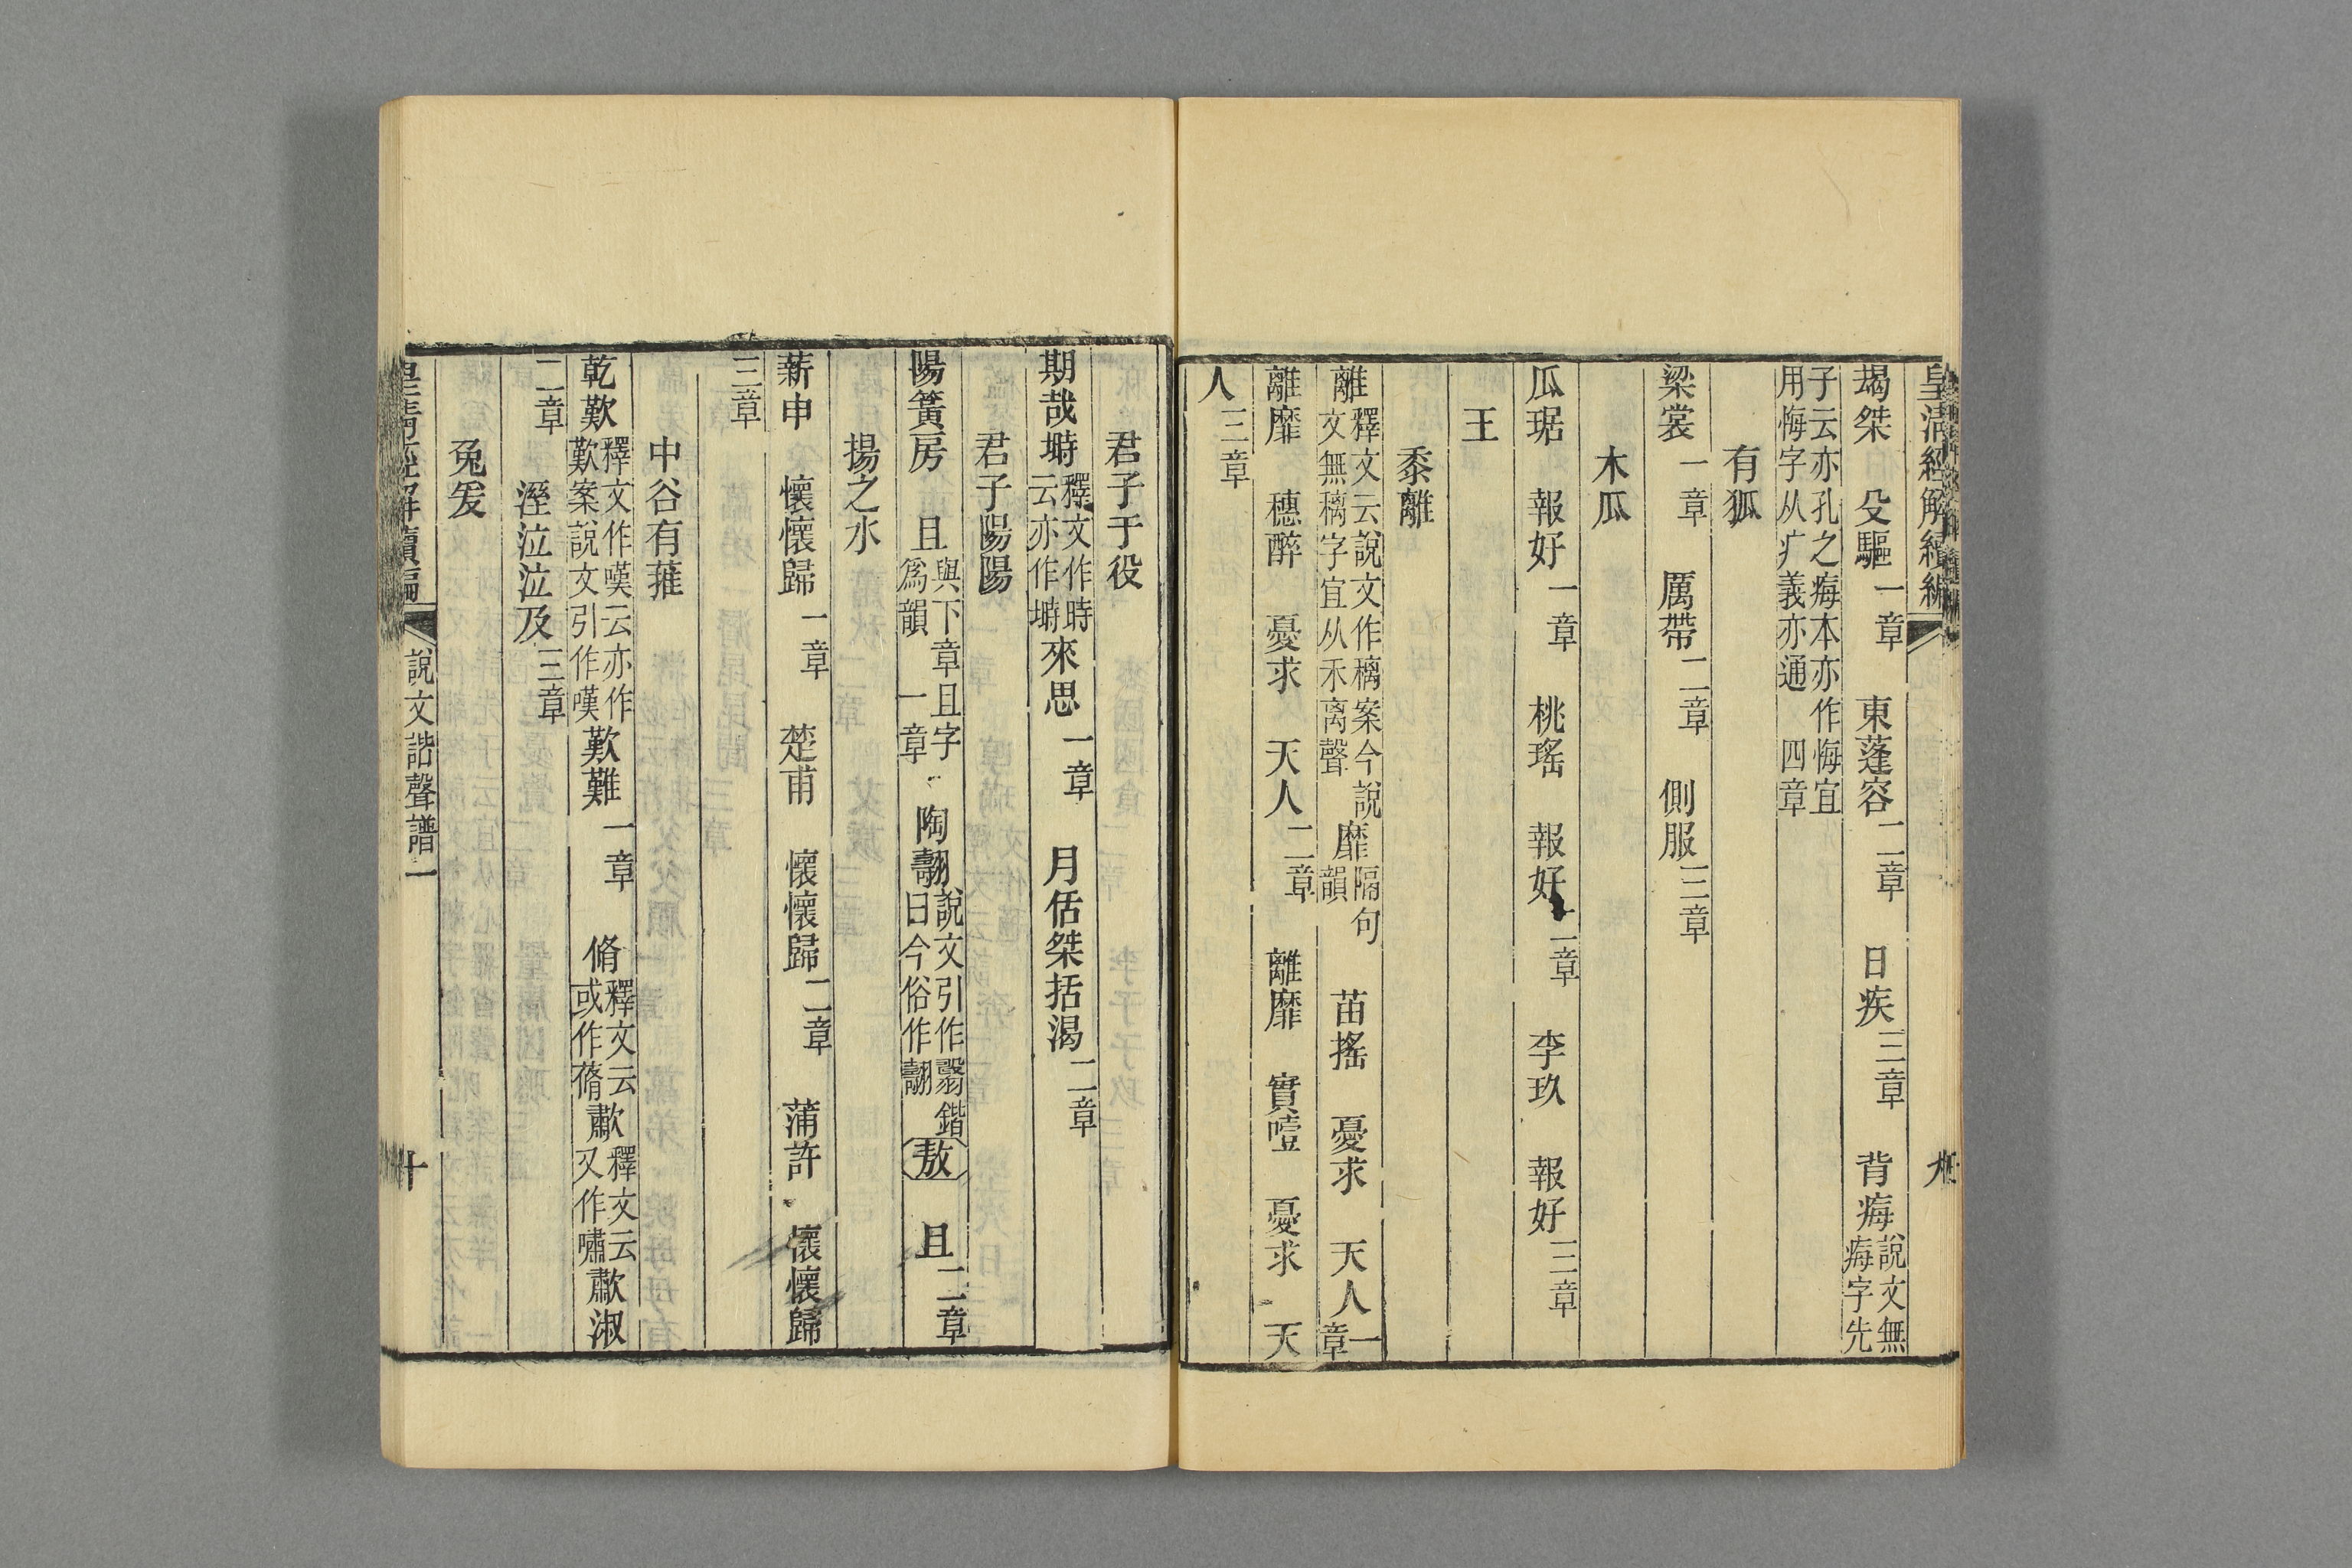 皇清經解續編 九
朅桀 殳驅一章 東蓬容二章 日疾三章 背痗說文無痗字先
子云亦孔之痗本亦作悔宜用悔字从疒義亦通 四章
有狐
梁裳一章 厲帶二章 側服三章
木瓜
瓜琚 報好一章 桃瑤 報好二章 李玖 報好三章
王
黍離
離釋文云說文作穲案今說文無穲字宜从禾离聲靡隔句韻 苗搖 憂求 天人一章
離靡 穗醉 憂求 天人二章 離靡 實噎 憂求 天
人三章
君子于役
期哉塒釋文作時云亦作塒來思一章 月佸桀括渴二章
君子陽陽
陽簧房 且與下章且字爲韻 一章 陶翿說文引作翳鍇曰今俗作翿敖 且二章
揚之水
薪申 懷懷歸一章 楚甫 懷懷歸二章 蒲許 懷懷歸
三章
中谷有蓷
乾歎釋文作嘆云亦作歎案說文引作嘆歎難一章 脩釋文云或作蓨歗釋文云又作嘯歗淑
二章 溼泣泣及三章
兔爰
皇清經解續編 說文諧聲譜一 十